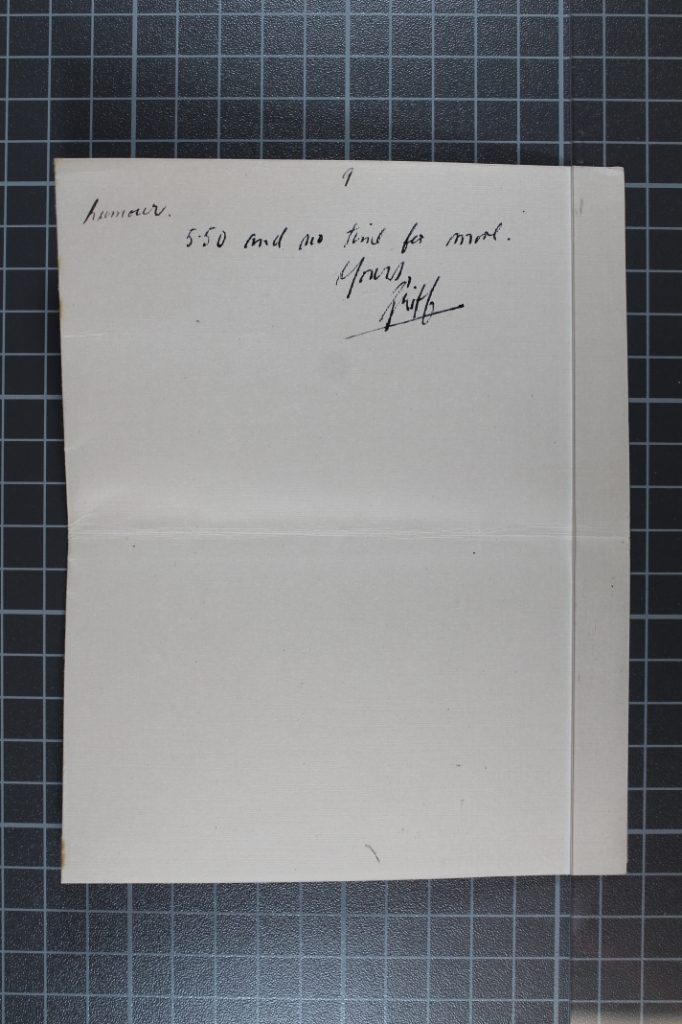 9
humour.
5.50 and no time for more.
Yours,
Griff